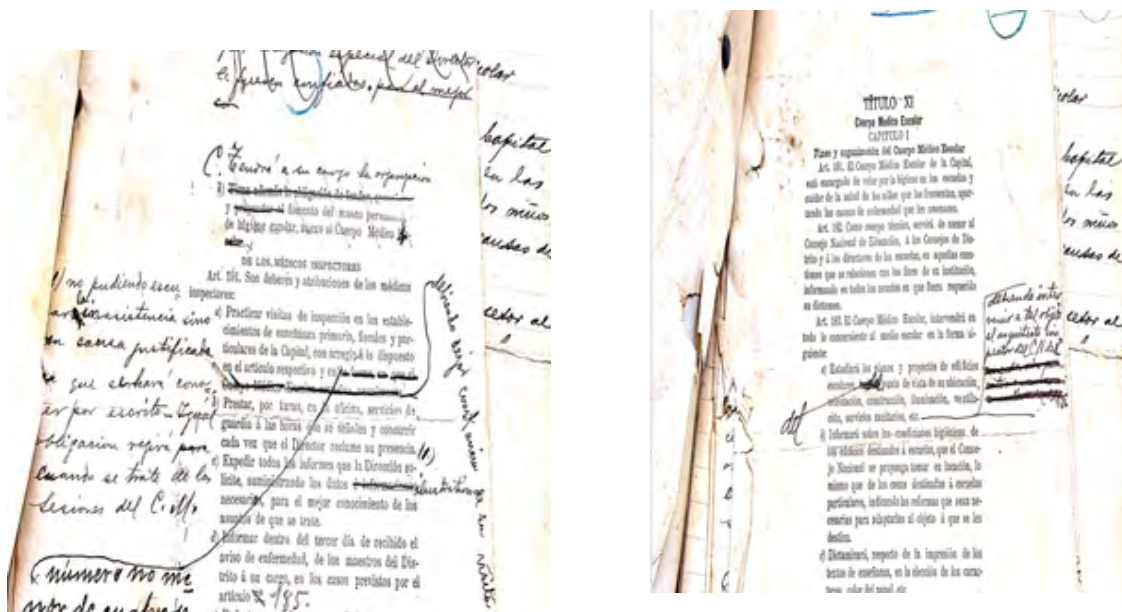 especial del
confiados, para el mejor
C. Tendrá a su cargo la organización
y fomento del museo
de higiene escolar, anexo al Cuerpo Médico
DE LOS MÉDICOS INSPECTORES
Art. 191. Son deberes y atribuciones de los médicos
inspectores:
a) Practicar visitas de inspección en los estable-
cimientos de enseñanza primaria, fiscales y par-
ticulares de la Capital, con arreglo á lo dispuesto
en el artículo respectivo y en
b) Prestar, por turno, en la oficina, servicios de
guardia á las horas que se señalen y concurrir
cada vez que el Director reclame su presencia. (1)
c) Expedir todos los informes que la Dirección so-
licite, suministrando los datos
necesarios, para el mejor conocimiento de los
asuntos de que se trate.
d) Informar dentro del tercer día de recibido el
aviso de enfermedad, de los maestros del Dis-
trito á su cargo, en los casos previstos por el
artículo 195.
1) no pudiendo
inasistencia sino
en causa justificada
que
por escrito - Igual
obligacion regirá para
cuando se trate de las
sesiones del C. M.
número no me
nor de
debiendo
visita
colar
Capital
en las
los niños
causas de
cedor al
TÍTULO XI
Cuerpo Médico Escolar
CAPÍTULO I
Fines y organización del Cuerpo Médico Escolar
Art. 181. El Cuerpo Médico Escolar de la Capital,
está encargado de velar por la higiene en las escuelas y
cuidar de la salud de los niños que las frecuentan, apar-
tando las causas de enfermedad que les amenacen.
Art. 182. Como cuerpo técnico, servirá de asesor al
Consejo Nacional de Educación, á los Consejos de Dis-
trito y á los directores de las escuelas, en aquellas cues-
tiones que se relacionen con los fines de su institución,
informando en todos los asuntos en que fuera requerido
su dictamen.
Art. 183. El Cuerpo Médico Escolar, intervendrá en
todo lo concerniente al medio escolar en la forma si-
guiente:
a) Estudiará los planos y proyectos de edificios
escolares, punto de vista de su ubicación,
orientación, construcción, iluminación, ventila-
ción, servicios sanitarios, etc.
b) Informará sobre las condiciones higiénicas de
los edificios destinados á escuelas, que el Conse-
jo Nacional se proponga tomar en locación, lo
mismo que de las casas destinadas á escuelas
particulares, indicando las reformas que sean ne-
cesarias para adaptarlas al objeto á que se les
destina.
c) Dictaminará, respecto de la impresión de los
textos de enseñanza, en la elección de los carac-
teres, color del papel, etc.
del
debiendo inter
venir a tal objeto
el arquitecto ins
pector del C. N. de E.
colar
Capital
en las
los niños
causas de
cedor al